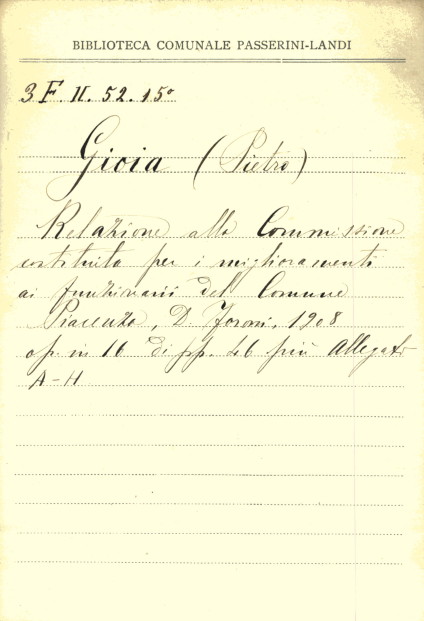 BIBLIOTECA COMUNALE PASSERINI-LANDI
3 F. II. 52. 15°
Gioia (Pietro)
Relazione alla Commissione
costituita per i miglioramenti
ai funzionarii del Comune
Piacenza, D. Foroni, 1908
op. in 16 di pp. 46 più Allegati
A-H